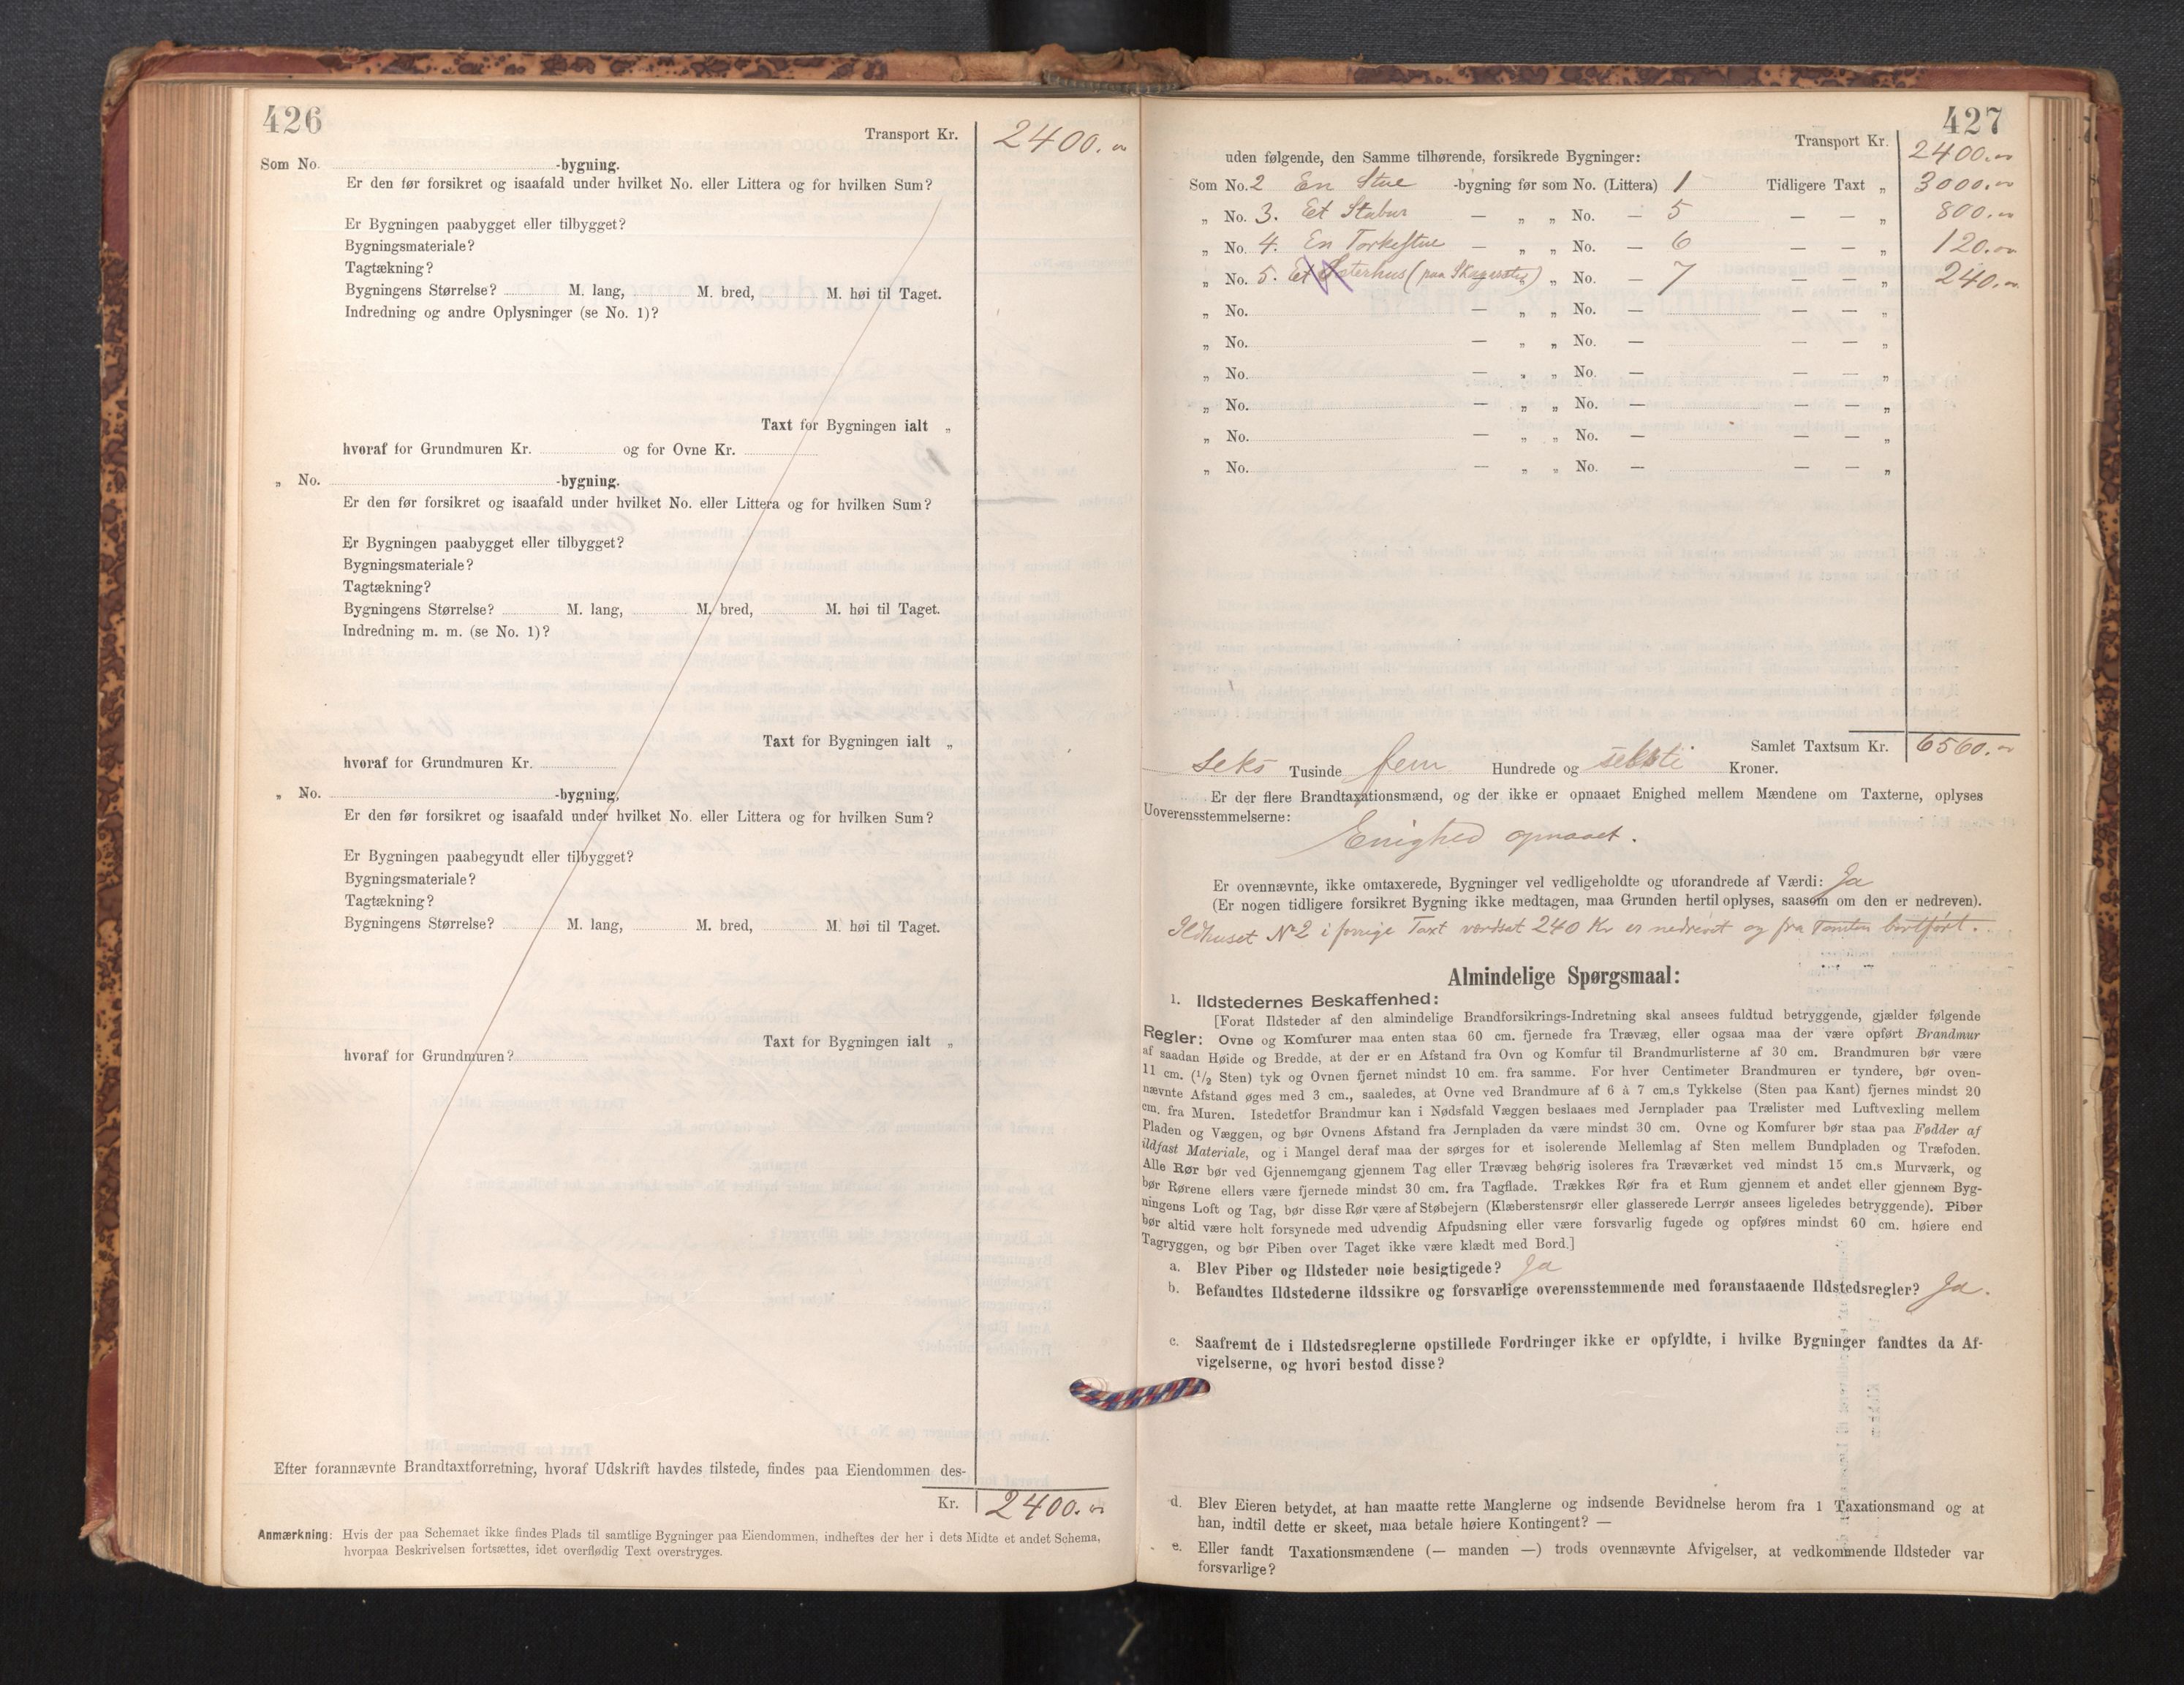 426
Transport Kr. 2400.00
Som No. -bygning.
Er den før forsikret og isaafald under hvilket No. eller Littera og for hvilken Sum?
Er Bygningen paabygget eller tilbygget?
Bygningsmateriale?
Tagtækning?
Bygningens Størrelse? M. lang, M. bred, M. høi til Taget.
Indredning og andre Oplysninger (se No. 1)?
Taxt for Bygningen ialt „
hvoraf for Grundmuren Kr. og for Ovne Kr.
„ No. -bygning.
Er den før forsikret og isaafald under hvilket No. eller Littera og for hvilken Sum?
Er Bygningen paabygget eller tilbygget?
Bygningsmateriale?
Tagtækning?
Bygningens Størrelse? M. lang, M. bred, M. høi til Taget.
Indredning m. m. (se No. 1)?
Taxt for Bygningen ialt „
hvoraf for Grundmuren Kr.
„ No. -bygning,
Er den før forsikret og isaafald under hvilket No. eller Littera og for hvilken Sum?
Er Bygningen paabegyudt eller tilbygget?
Bygningsmateriale?
Tagtækning?
Bygningens Størrelse? M. lang, M. bred, M. høi til Taget.
Taxt for Bygningen ialt „
hvoraf for Grundmuren?
Efter forannævnte Brandtaxtforretning, hvoraf Udskrift havdes tilstede, findes paa Eiendommen des-
Kr. 2400.00
Anmærkning: Hvis der paa Schemaet ikke findes Plads til samtlige Bygninger paa Eiendommen, indheftes der her i dets Midte et andet Schema,
hvorpaa Beskrivelsen fortsættes, idet overflødig Text overstryges.
427
Transport Kr. 2400.00
uden følgende, den Samme tilhørende, forsikrede Bygninger:
Som No. 2 En Stue -bygning før som No. (Littera) 1 Tidligere Taxt „ 3000.00
„ No. 3. Et Stabur — „ „ No. — 5 — — „ 800.00
„ No. 4. En Torkestue — „ „ No. — 6 — — „ 120.00
„ No. 5. Et Sæterhus (paa ) „ No. — 7 — — „ 240.00
„ No. — „ „ No. — — — „
„ No. — „ „ No. — — — „
„ No. — „ „ No. — — — „
„ No. — „ „ No. — — — „
„ No. — „ „ No. — — — „
„ No. — „ „ No. — — — „
Samlet Taxtsum Kr. 6560.00
Seks Tusinde fem Hundrede og seksti Kroner.
Er der flere Brandtaxationsmænd, og der ikke er opnaaet Enighed mellem Mændene om Taxterne, oplyses
Uoverensstemmelserne:
Enighed opnaaet.
Er ovennævnte, ikke omtaxerede, Bygninger vel vedligeholdte og uforandrede af Værdi: Ja
(Er nogen tidligere forsikret Bygning ikke medtagen, maa Grunden hertil oplyses, saasom om den er nedreven).
Ildhuset No 2 i forrige Taxt værdsat 240 Kr er nedrevet og fra Tomten bortført.
Almindelige Spørgsmaal:
1. Ildstedernes Beskaffenhed:
[Forat Ildsteder af den almindelige Brandforsikrings-Indretning skal ansees fuldtud betryggende, gjælder følgende
Regler: Ovne og Komfurer maa enten staa 60 cm. fjernede fra Trævæg, eller ogsaa maa der være opført Brandmur
af saadan Høide og Bredde, at der er en Afstand fra Ovn og Komfur til Brandmurlisterne af 30 cm. Brandmuren bør være
11 cm. (1/2 Sten) tyk og Ovnen fjernet mindst 10 cm. fra samme. For hver Centimeter Brandmuren er tyndere, bør oven-
nævnte Afstand øges med 3 cm., saaledes, at Ovne ved Brandmure af 6 à 7 cm.s Tykkelse (Sten paa Kant) fjernes mindst 20
cm. fra Muren. Istedetfor Brandmur kan i Nødsfald Væggen beslaaes med Jernplader paa Trælister med Luftvexling mellem
Pladen og Væggen, og bør Ovnens Afstand fra Jernpladen da være mindst 30 cm. Ovne og Komfurer bør staa paa Fødder af
ildfast Materiale, og i Mangel deraf maa der sørges for et isolerende Mellemlag af Sten mellem Bundpladen og Træfoden.
Alle Rør bør ved Gjennemgang gjennem Tag eller Trævæg behørig isoleres fra Træværket ved mindst 15 cm.s Murværk, og
bør Rørene ellers være fjernede mindst 30 cm. fra Tagflade. Trækkes Rør fra et Rum gjennem et andet eller gjennem Byg-
ningens Loft og Tag, bør disse Rør være af Støbejern (Klæberstensrør eller glasserede Lerrør ansees ligeledes betryggende). Piber
bør altid være helt forsynede med udvendig Afpudsning eller være forsvarlig fugede og opføres mindst 60 cm. høiere end
Tagryggen, og bør Piben over Taget ikke være klædt med Bord.]
a. Blev Piber og Ildsteder nøie besigtigede? Ja
b. Befandtes Ildstederne ildssikre og forsvarlige overensstemmende med foranstaaende Ildstedsregler? Ja.
c. Saafremt de i Ildstedsreglerne opstillede Fordringer ikke er opfyldte, i hvilke Bygninger fandtes da Af-
vigelserne, og hvori bestod disse?
d. Blev Eieren betydet, at han maatte rette Manglerne og indsende Bevidnelse herom fra 1 Taxationsmand og at
han, indtil dette er skeet, maa betale høiere Kontingent? —
e. Eller fandt Taxationsmændene (— manden —) trods ovennævnte Afvigelser, at vedkommende Ildsteder var
forsvarlige?